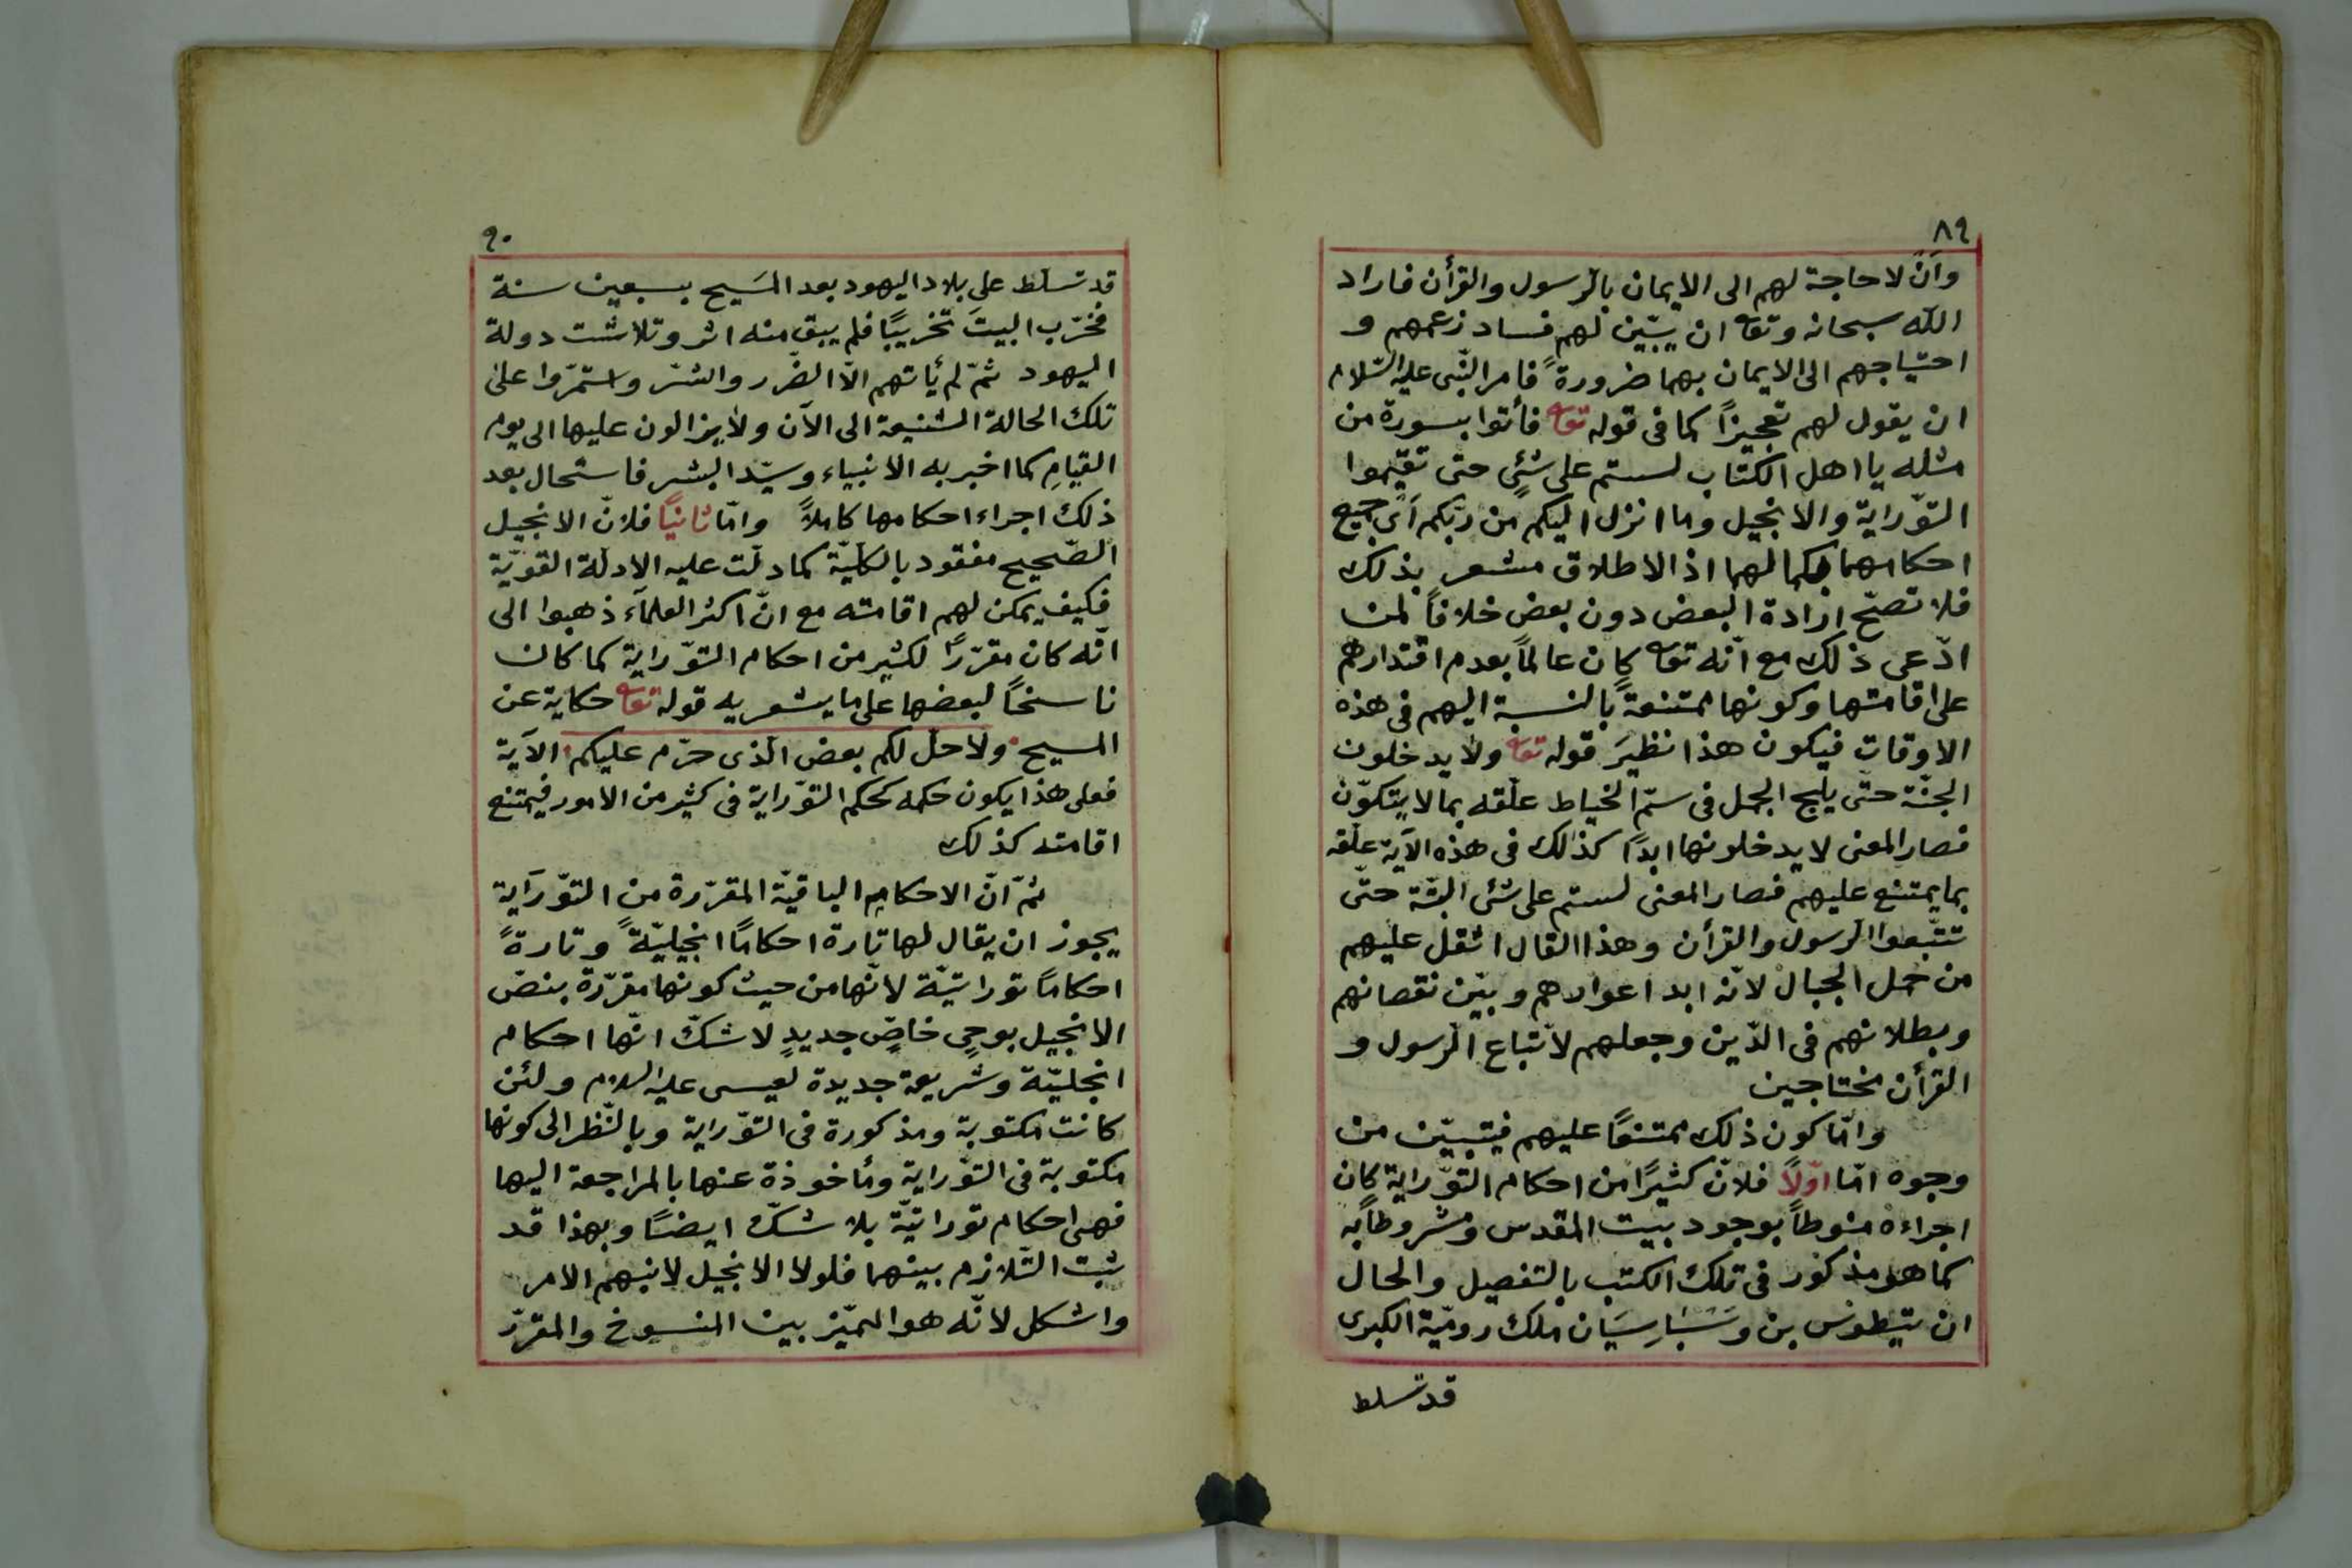 ٨٩
وَاَنْ لا حاجة لهم الى الايمان بالرّسول والقرأن فاراد
اللّه سبحانه وتعا ان يبيّن لهم فساد زعمهم و
احتياجهم الى الايمان بهما ضرورةً فامر النّبى عليه السّلام
ان يقول لهم تعجيزاً كما فى قوله تعا فأتوا بسورة من
مثله يا اهل الكتاب لستم على شئٍ حتى تقيموا
التّوراية والانجيل وما انزل اليكم من ربّكم اَى جميع
احكامهما بكمالهما اذ الاطلاق مشعر بذلك
فلا تصحّ ارادة البعض دون بعض خلافاً لمن
ادّعى ذلك مع انّه تعا كان عالماً بعدم اقتدارهم
على اقامتها وكونها ممتنعةً بالنسبة اليهم فى هذه
الاوقات فيكون هذا نظيرَ قوله تعا ولا يدخلون
الجنّة حتّى يلج الجمل فى سمّ الخياط علّقه بما لا يتكوّن
فصار المعنى لا يدخلونها ابدًا كذلك فى هذه الاَية علّقه
بما يمتنع عليهم فصار المعنى لستم على شئ البتّة حتّى
تتّبعوا الرّسول والقرأن وهذا القال اثقل عليهم
من حمل الجبال لانّه ابدا عوارهم وبيّن نقصانهم
وبطلانهم فى الدّين وجعلهم لاتّباع الرّسول و
القرأن محتاجين
وامّا كون ذلك ممتنعًا عليهم فيتبيّن من
وجوه امّا اوّلاً فلانّ كثيرًا من احكام التّوراية كان
اجراءه منوطاً بوجود بيت المقدس ومشروطاً به
كما هو مذكور فى تلك الكتب بالتفصيل والحال
ان تيطوس بن وَسْبَارِسيَان ملك روميّة الكبرى
قد تسلط
٩٠
قد تسلّط على بلاد اليهود بعد المَسيح بسبعين سنة
فخرّب البيتَ تخريبًا فلم يبق منه اثر وتلاشت دولة
اليهود ثمّ لم يأتهم الاّ الضّرر والشّر واستمرّوا على
تلك الحالة الشنيعة الى الآن ولا يزالون عليها الى يوم
القيامِ كما اخبر به الانبياء وسيّد البشر فاستحال بعد
ذلك اجراء احكامها كاملاً وامّا ثانيًا فلانّ الانجيل
الصّحيح مفقود بالكليّة كما دلّت عليه الادلّة القويّة
فكيف يمكن لهم اقامته مع انّ اكثر العلمآء ذهبوا الى
انّه كان مقرّرًا لكثير من احكام التّوراية كما كان
ناسخاً لبعضها على ما يشعر به قوله تعا حكاية عن
المسيح ولاحلّ لكم بعض الّذى حرّم عليكم الاَية
فعلى هذا يكون حكمه كحكم التّوراية فى كثير من الامور فيمتنع
اقامته كذلك
ثمّ انّ الاحكام الباقيّة المقرّرة من التّورَاية
يجوز ان يقال لها تارة احكامًا انجيليّةً وتارةً
احكامًا توراتيّة لانّها من حيث كونها مقرّرة بنصّ
الانجيل بوحىٍ خاصٍّ جديدٍ لا شكّ انّها احكام
انجليّة وشريعة جديدة لعيسى عليه السلام ولئن
كانت مكتوبة ومذكورة فى التّوراية وبالنّظر الى كونها
مكتوبة فى التّوراية ومأخوذة عنها بالمراجعة اليها
فهى احكام توراتيّة بلا شكّ ايضًا وبهذا قد
ثبت التّلازم بينهما فلولا الانجيل لانبهم الامر
واشكل لانّه هو المميّز بين المنسوخ والمقرّر